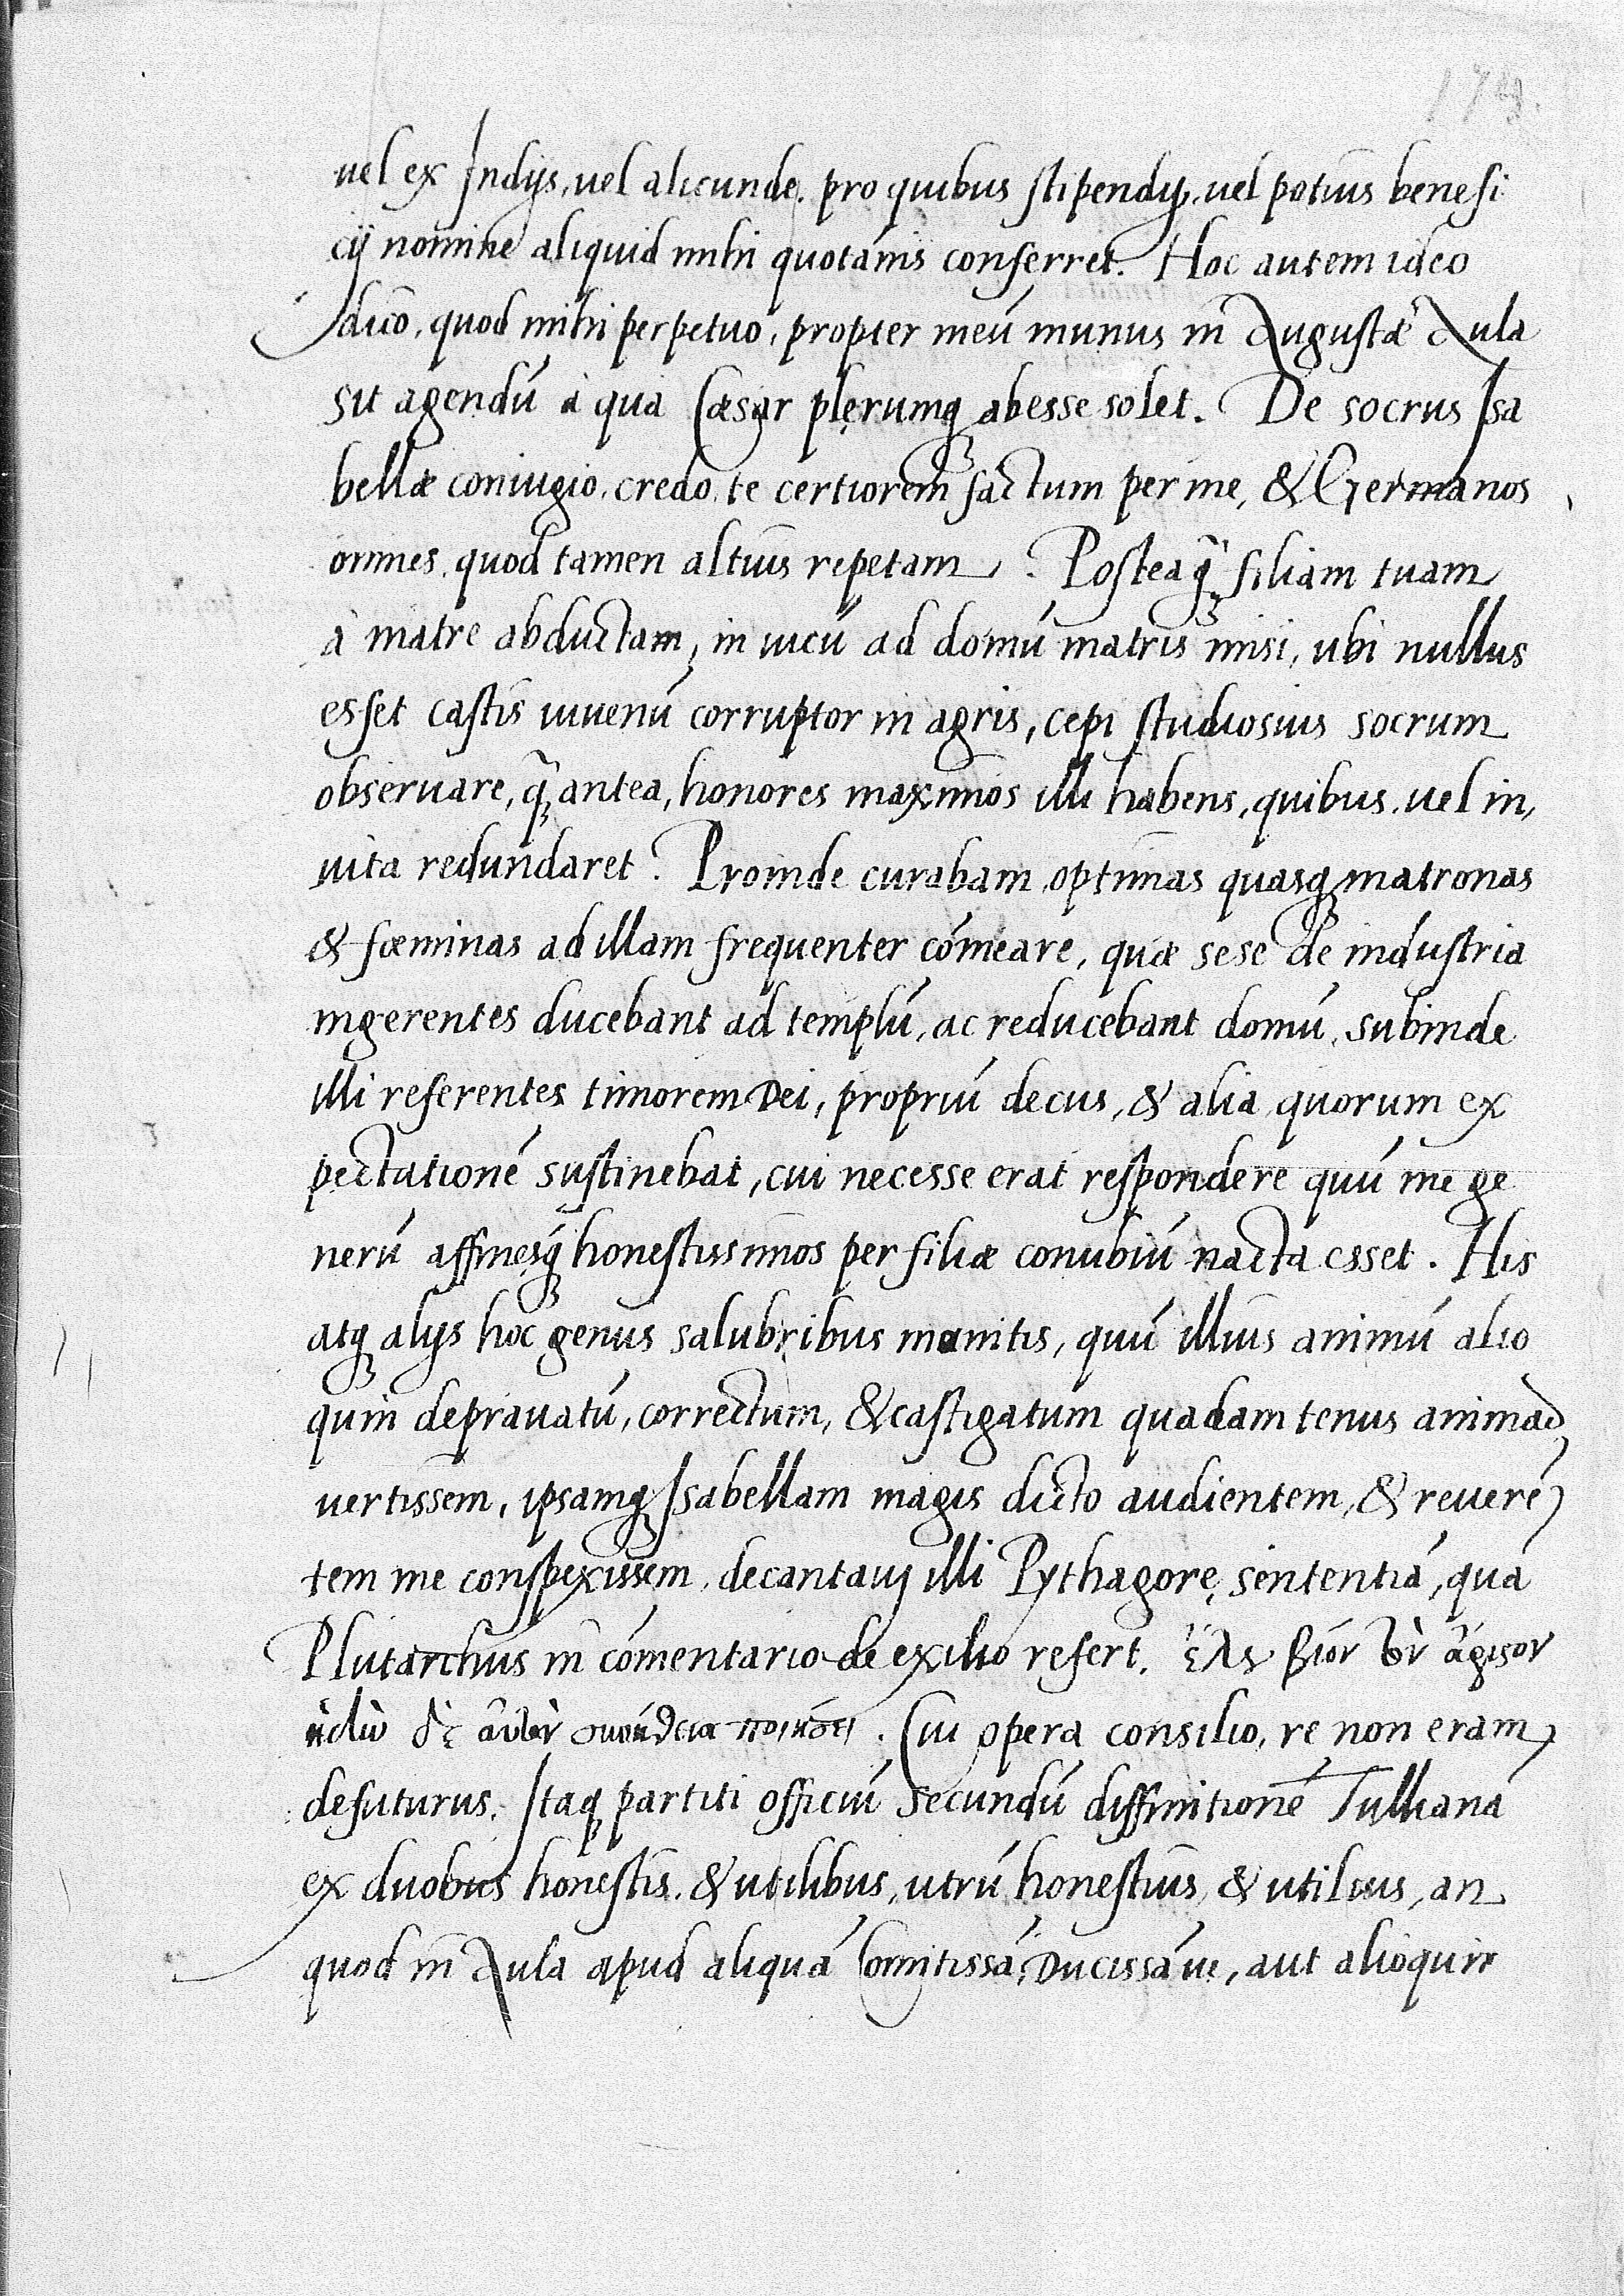 uel ex Indijs, uel alicunde, pro quibus stipendij, uel potius benefi
cij nomine aliquid mihi quotánis conferret. Hoc autem ideo
dico, quod mihi perpetuo, propter meú munus in Augustæ Aula
sit agendú à qua Cæsar plerumq abesse solet. De socrus Isa
bellæ coniugio, credo, te certiorem factum per me, & Germanos
omnes, quod tamen altius repetam. Posteaq̃ filiam tuam
à matre abductam, in uicú ad domú matris misi, ubi nullus
esset castis iuuenú corruptor in agris, cepi studiosius socrum
obseruare, q̃ antea, honores maximos illi habens, quibus, uel in,
uita redundaret. Proinde curabam optimas quasq matronas
& fœminas ad illam frequenter cómeare, quæ sese de industria
ingerentes ducebant ad templú, ac reducebant domú, subinde
illi referentes timorem Dei, propriú decus, & alia, quorum ex
pectationé sustinebat, cui necesse erat respondere quú me ge
nerú affinesq́ honestissimos per filiæ conubiú nacta esset. His
atq alijs hoc genus salubribus monitis, quú illius animú alio
quin deprauatú, correctum, & castigatum quadam tenus animad,
uertissem, ipsamq Isabellam magis dicto audientem, & reueré
tem me conspexissem, decantauj illi Pythagorę sententiá, quá
Plutarchus in cómentario de exilio refert. ἑλῦ βίον τὸν ἄριστον
ἡδὺν δὲ αὐτὸν συνήθεια ποιήσει. Cui opera consilio, re non eram
defuturus. Itaq partiti officiú secundú diffinitioné Tullianá
ex duobus honestis, & utilibus, utrú honestius, & utilius, an
quod in Aula apud aliquá Comitissá, Ducissáue, aut alioquin